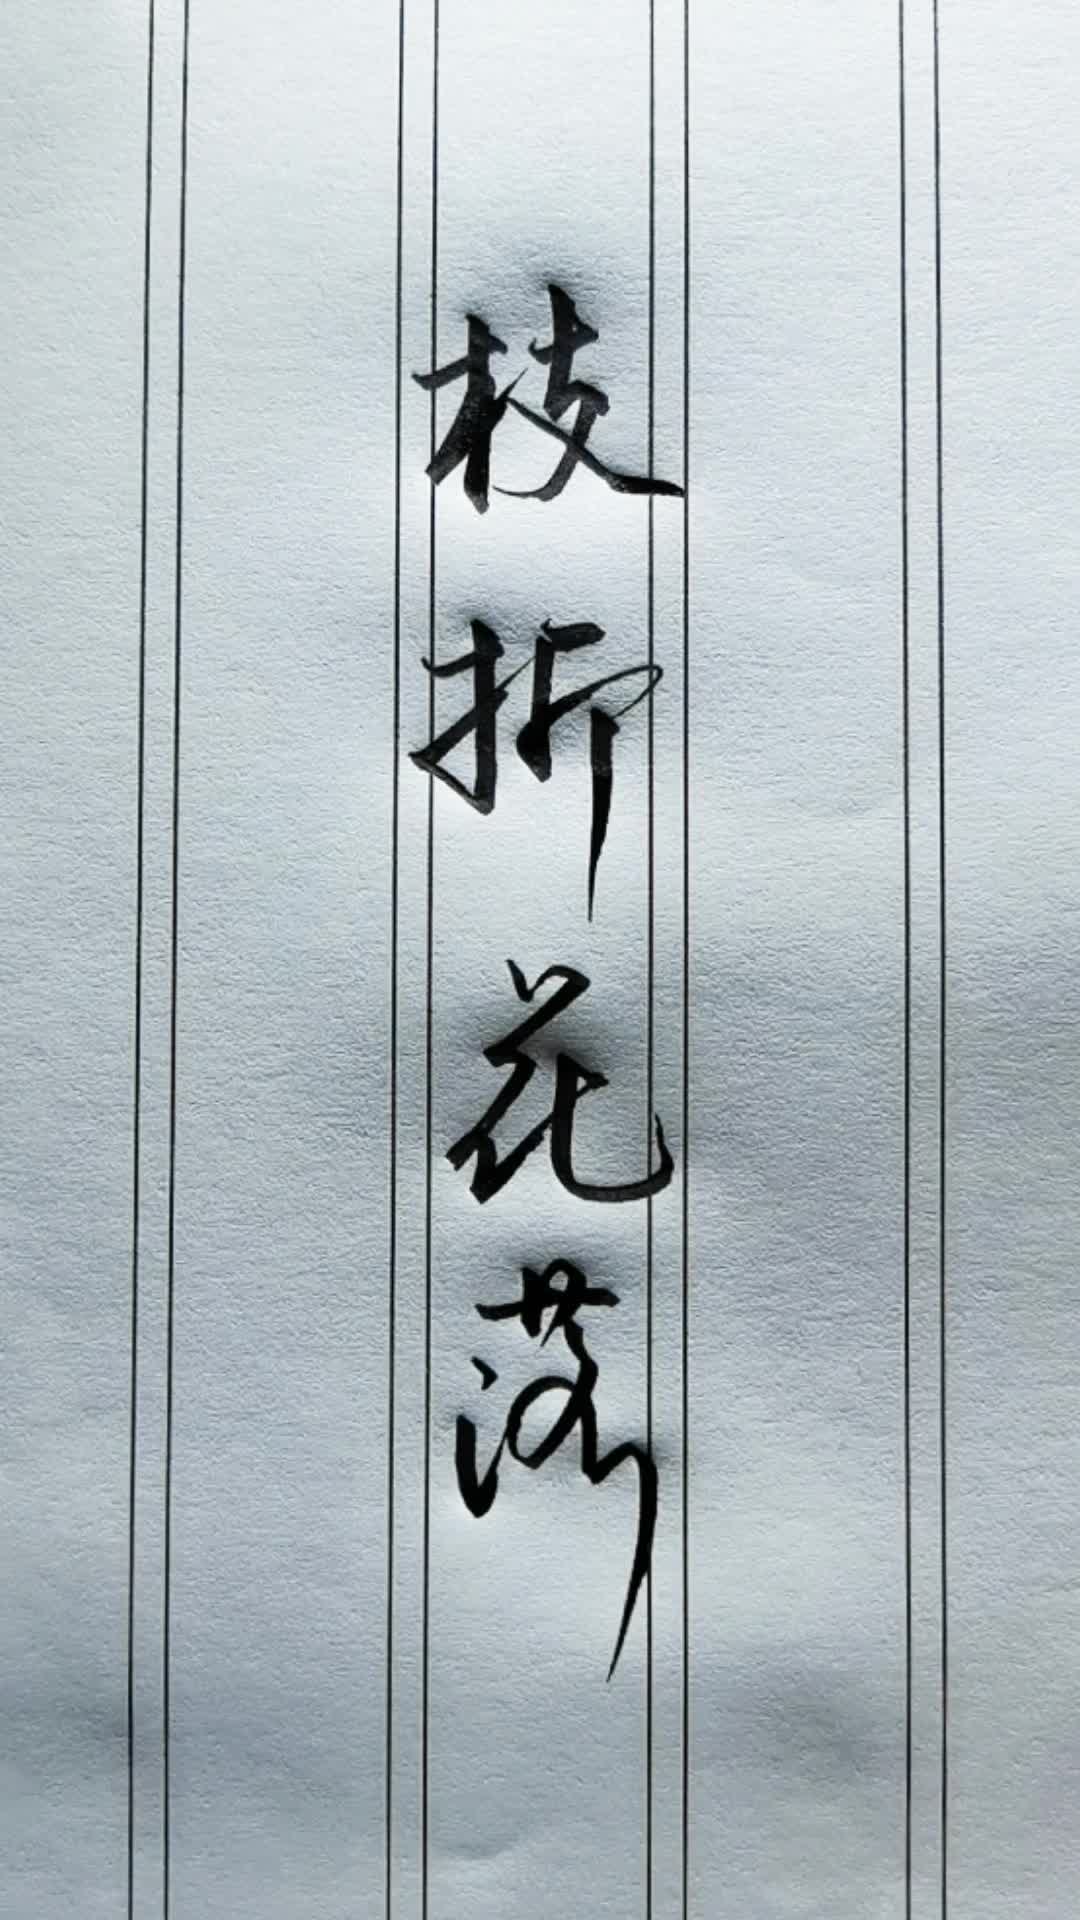 枝折花落